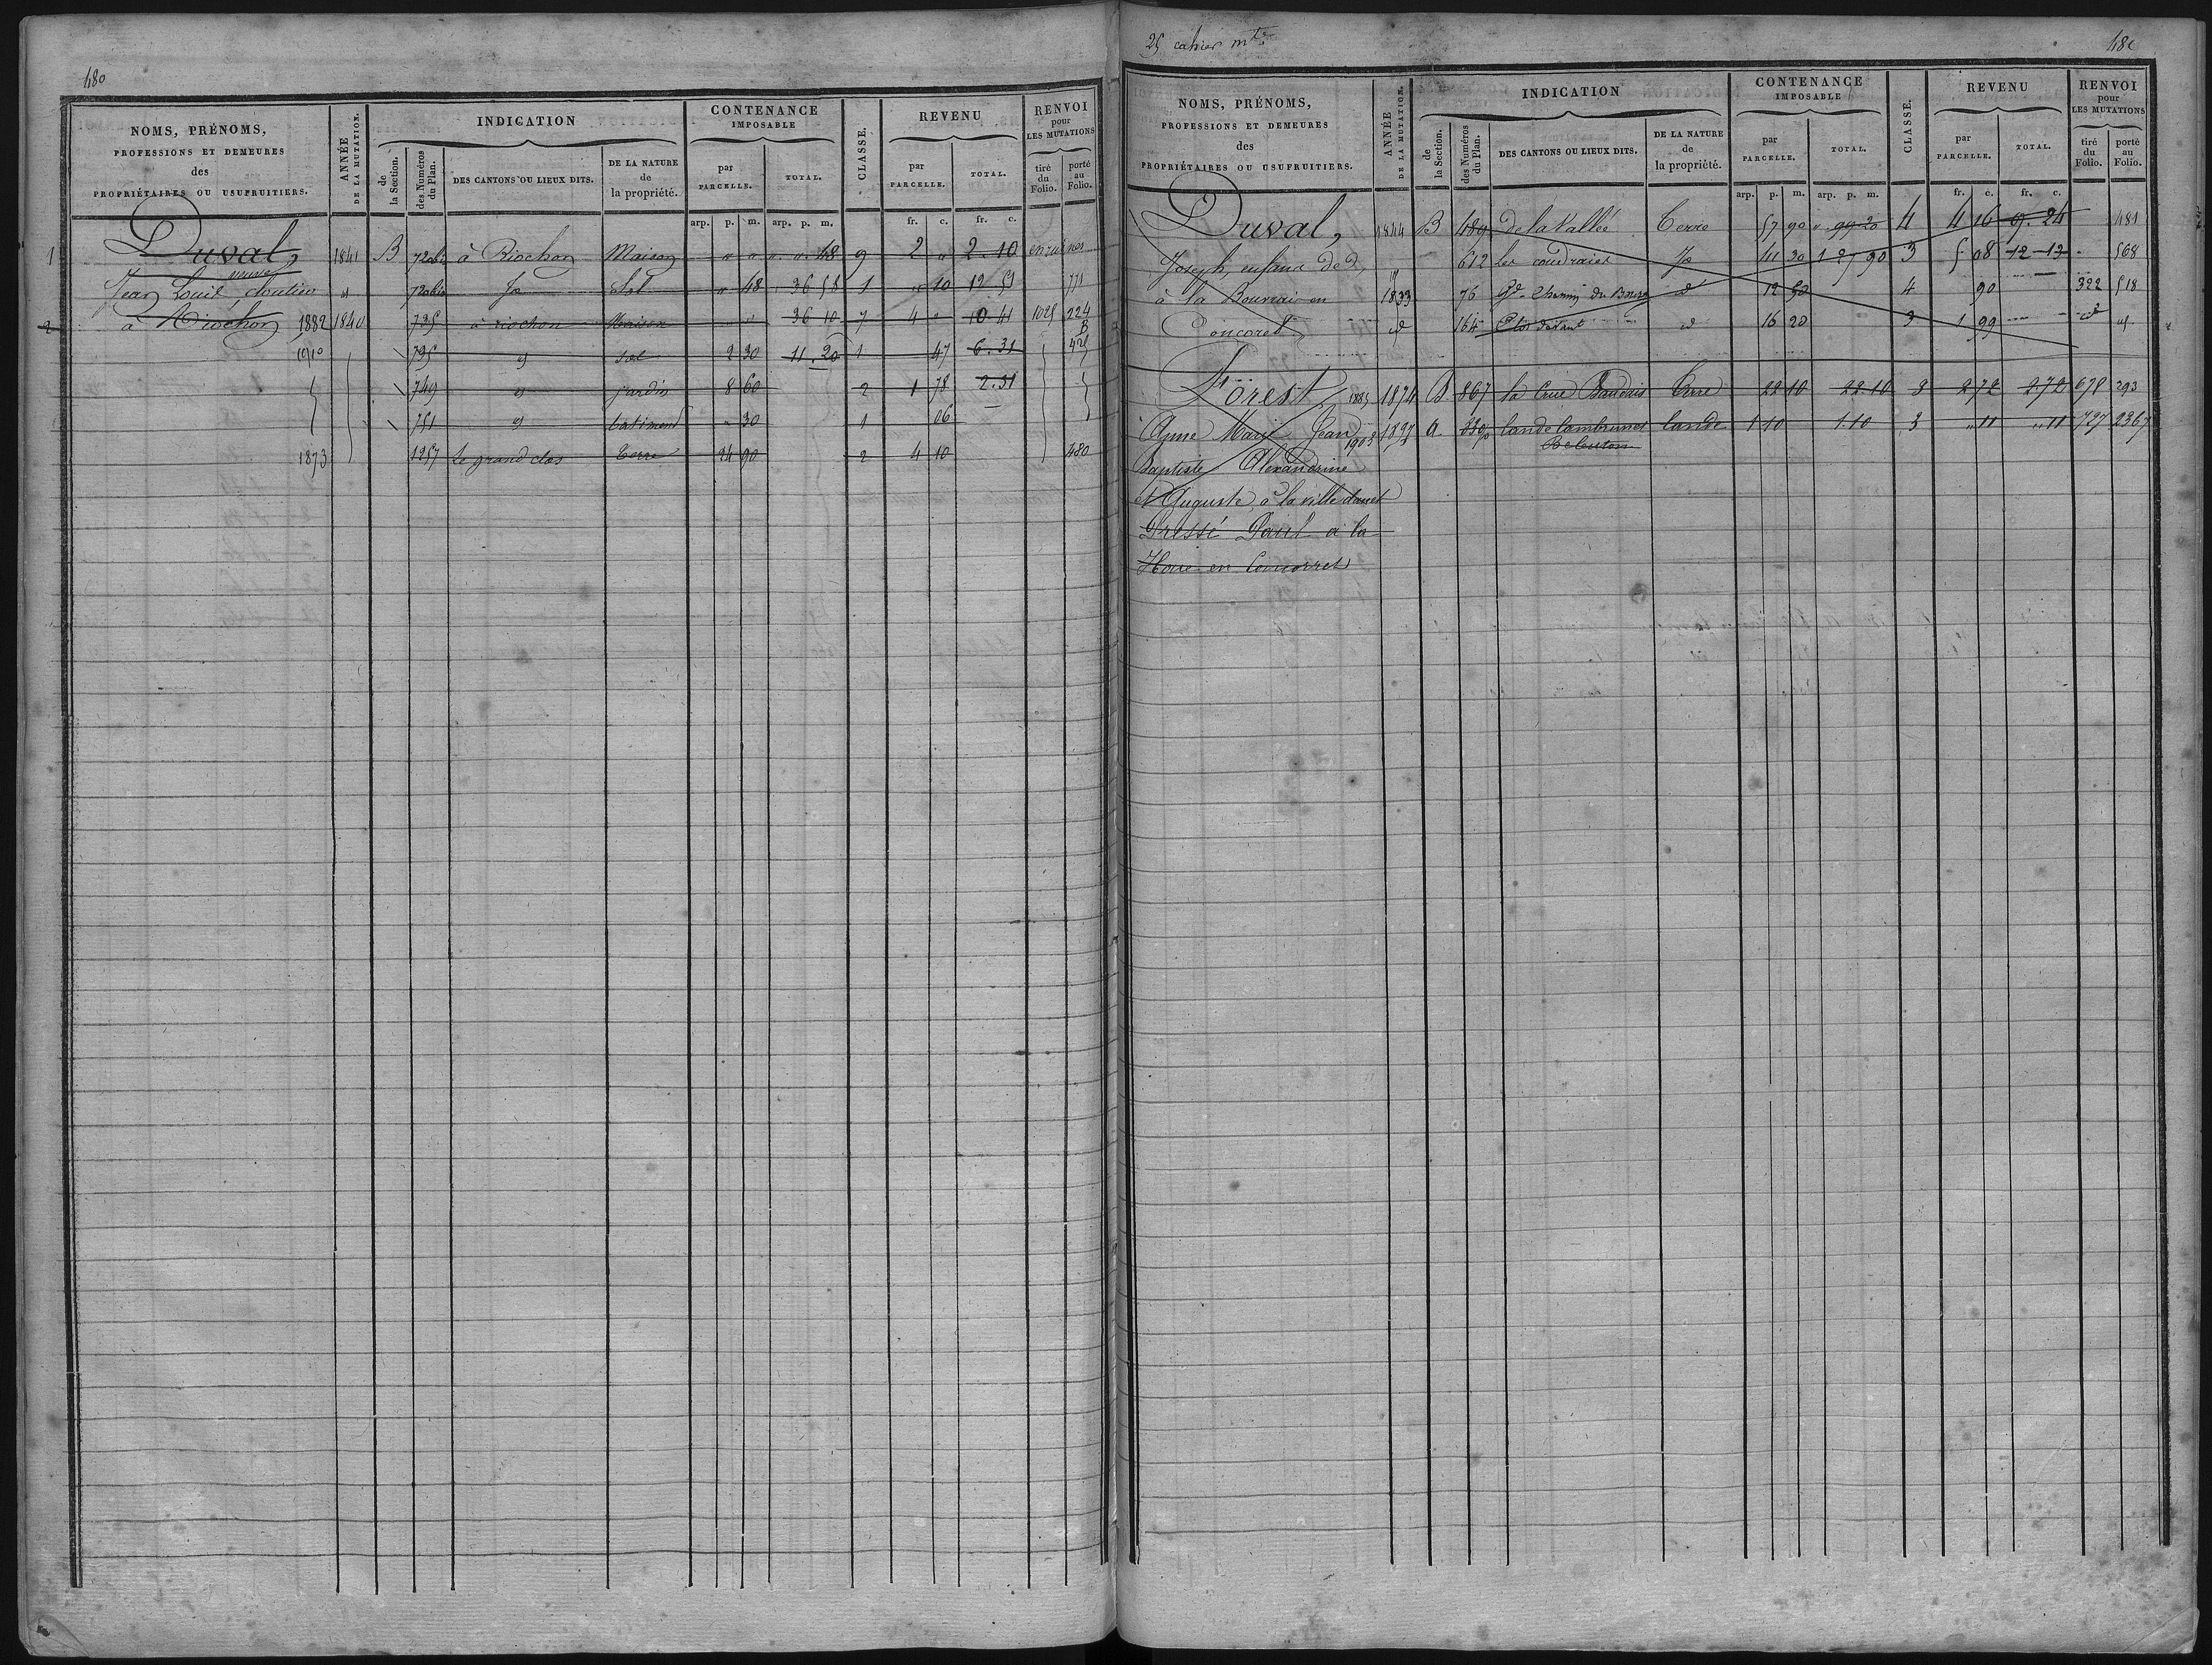 480
NOMS, PRÉNOMS,
PROFESSIONS ET DEMEURES
des
PROPRIÉTAIRES OU USUFRUITIERS.
ANNÉE
DE LA MUTATION.
INDICATION
de
la Section.
des Numéros
du Plan.
DES CANTONS OU LIEUX DITS.
DE LA NATURE
de
la propriété.
CONTENANCE
IMPOSABLE
par
PARCELLE.
TOTAL.
CLASSE.
REVENU
par
PARCELLE.
TOTAL.
RENVOI
pour
LES MUTATIONS
tiré
du
Folio.
porté
au
Folio.
arp. p. m. arp. p. m. fr. c. fr. c.
1 Duval, 1841 B 720bis à Riochon Maison " " " " 48 9 2 " 2 10 en ruines
Jean Louis veuve " 720bis Sol " 48 36 58 1 " 10 12 51 771
2 à Riochon 1882 1840 735 à riochon Maison " " 36 10 7 4 " 10 41 1025 224
795 sol 2 30 11 20 1 47 6.31
749 jardin 8 60 2 1 78 2.31
751 batiment " 30 1 06
1873 1257 Le grand clos Terre 24 90 2 4 10 480
25 cahier mte
NOMS, PRÉNOMS,
PROFESSIONS ET DEMEURES
des
PROPRIÉTAIRES OU USUFRUITIERS.
ANNÉE
DE LA MUTATION.
INDICATION
de
la Section.
des Numéros
du Plan.
DES CANTONS OU LIEUX DITS.
DE LA NATURE
de
la propriété.
CONTENANCE
IMPOSABLE
par
PARCELLE.
TOTAL.
CLASSE.
REVENU
par
PARCELLE.
TOTAL.
RENVOI
pour
LES MUTATIONS
tiré
du
Folio.
porté
au
Folio.
arp. p. m. arp. p. m. fr. c. fr. c.
Duval, 1844 B 489 de la Vallée Terre 57 90 " 99 20 4 4 16 9 24 481
Joseph, enfans de d 612 les coudraies 41 30 1 27 90 3 5 08 12 13 568
à la Bourrai en 1833 76 Gd Chemin du Bourg d 12 50 4 90 322 518
Concoret d 164 Clos devant d 16 20 3 1 99
Forest 1885 1874 B 867 la Crue Baudais Terre 22 10 22.10 3 2 72 2.72 678 293
Anne Marie Jean 1903 1897 a lande lambrunet lande 1 10 1.10 3 " 11 " 11 727 2367
Baptiste Alexandrine
et Auguste, à la ville danet
Pressé Paul à la
Haie en Concorret